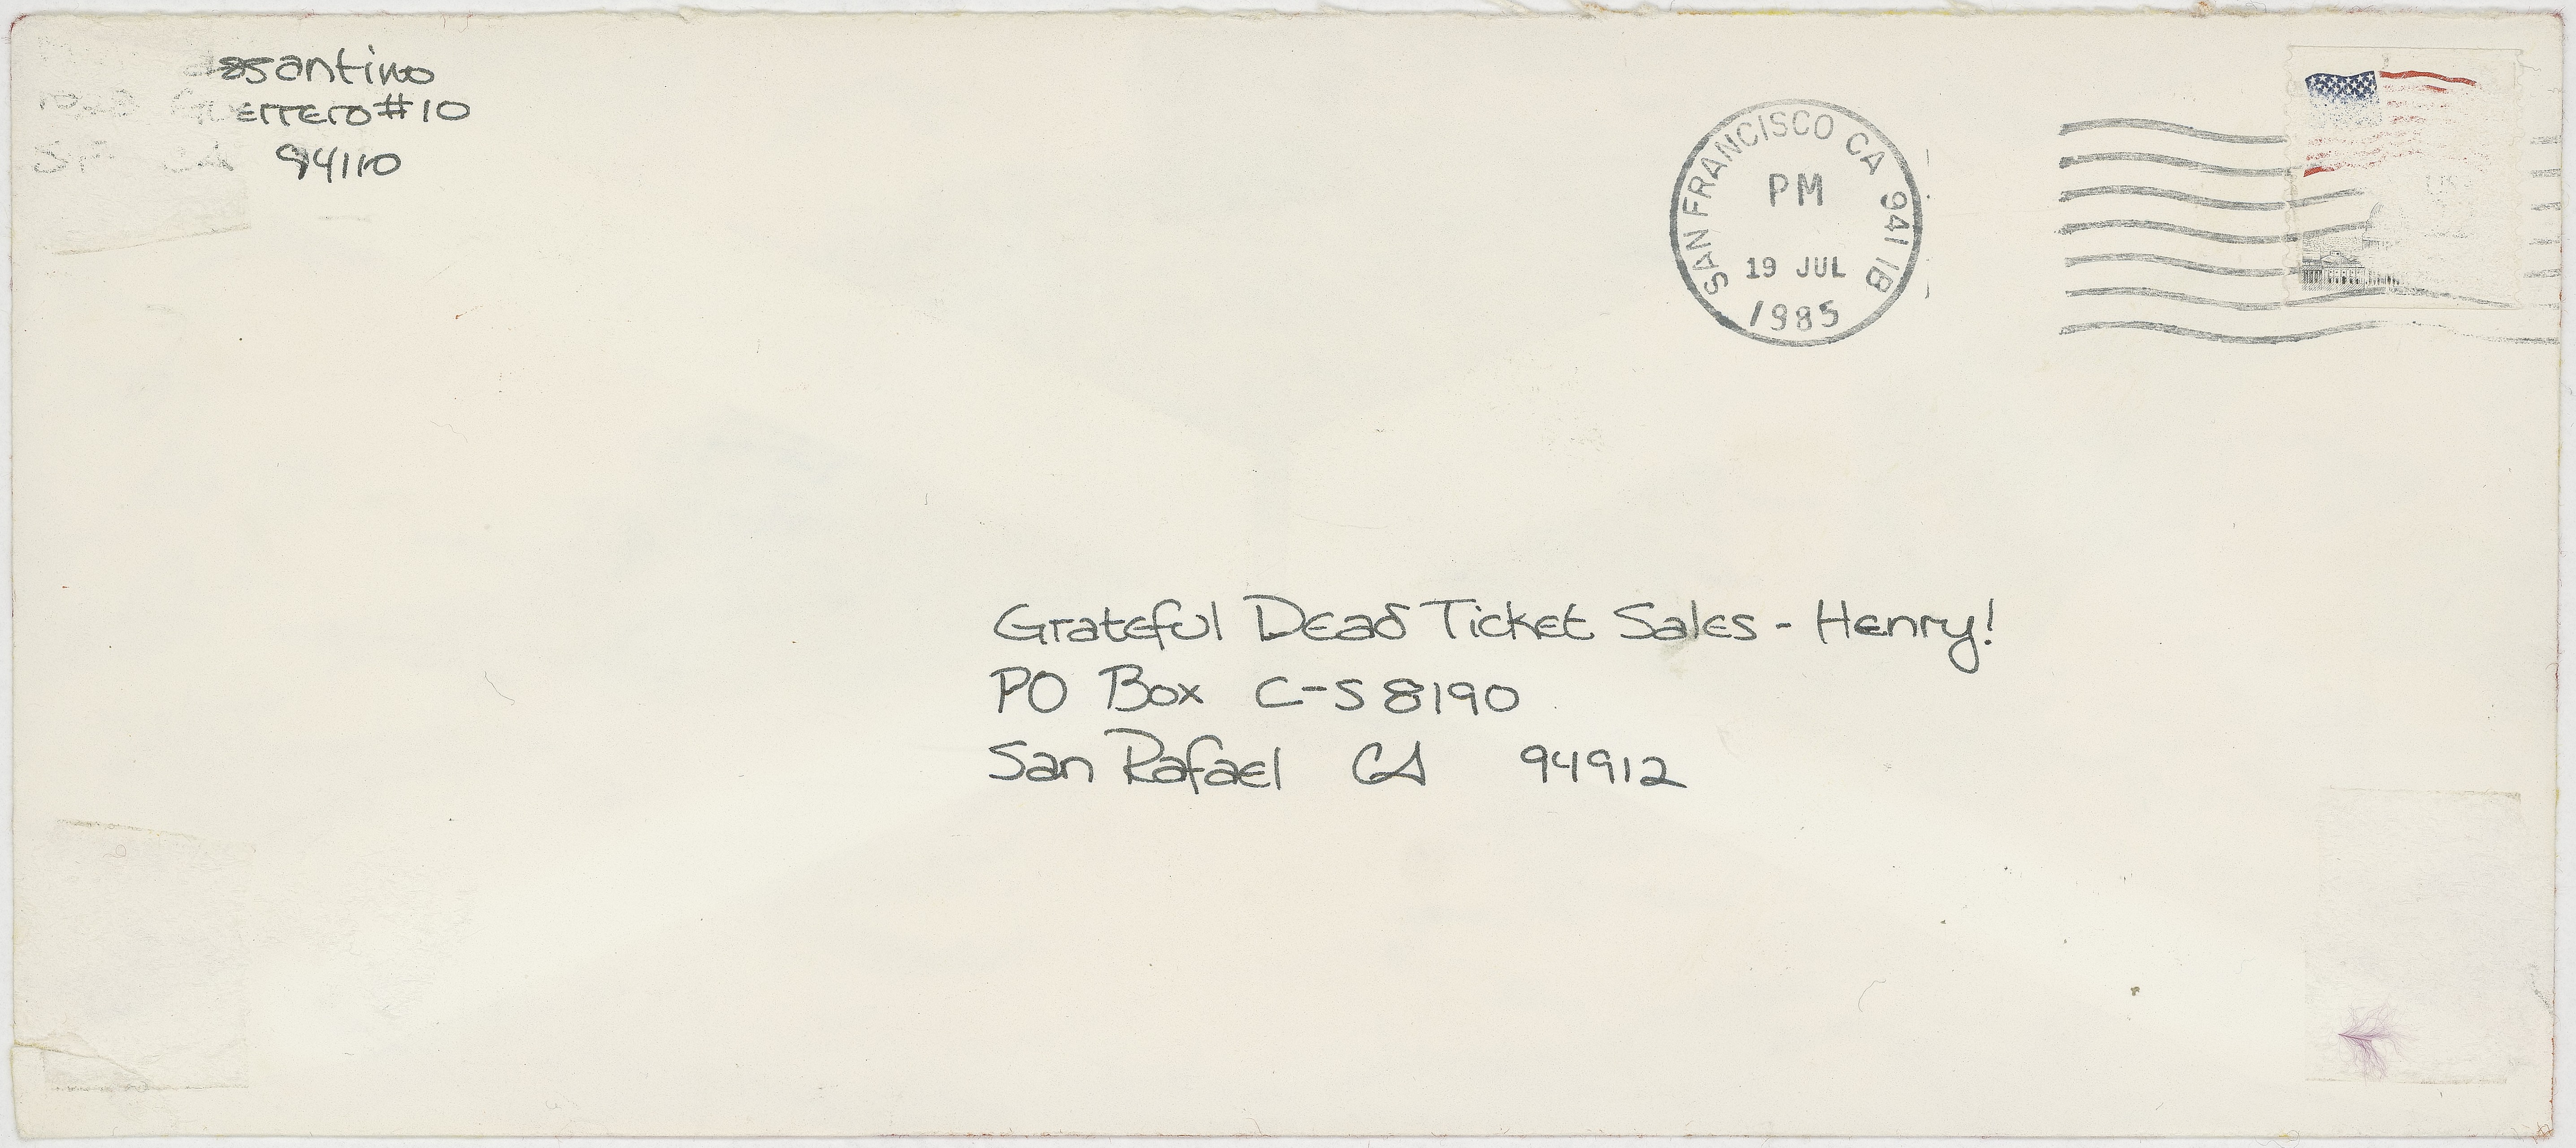 santino
errero #10
94110
SAN FRANCISCO CA 941 1B
PM
19 JUL
1985
Grateful Dead Ticket Sales - Henry!
PO Box C-S 8190
San Rafael CA 94912